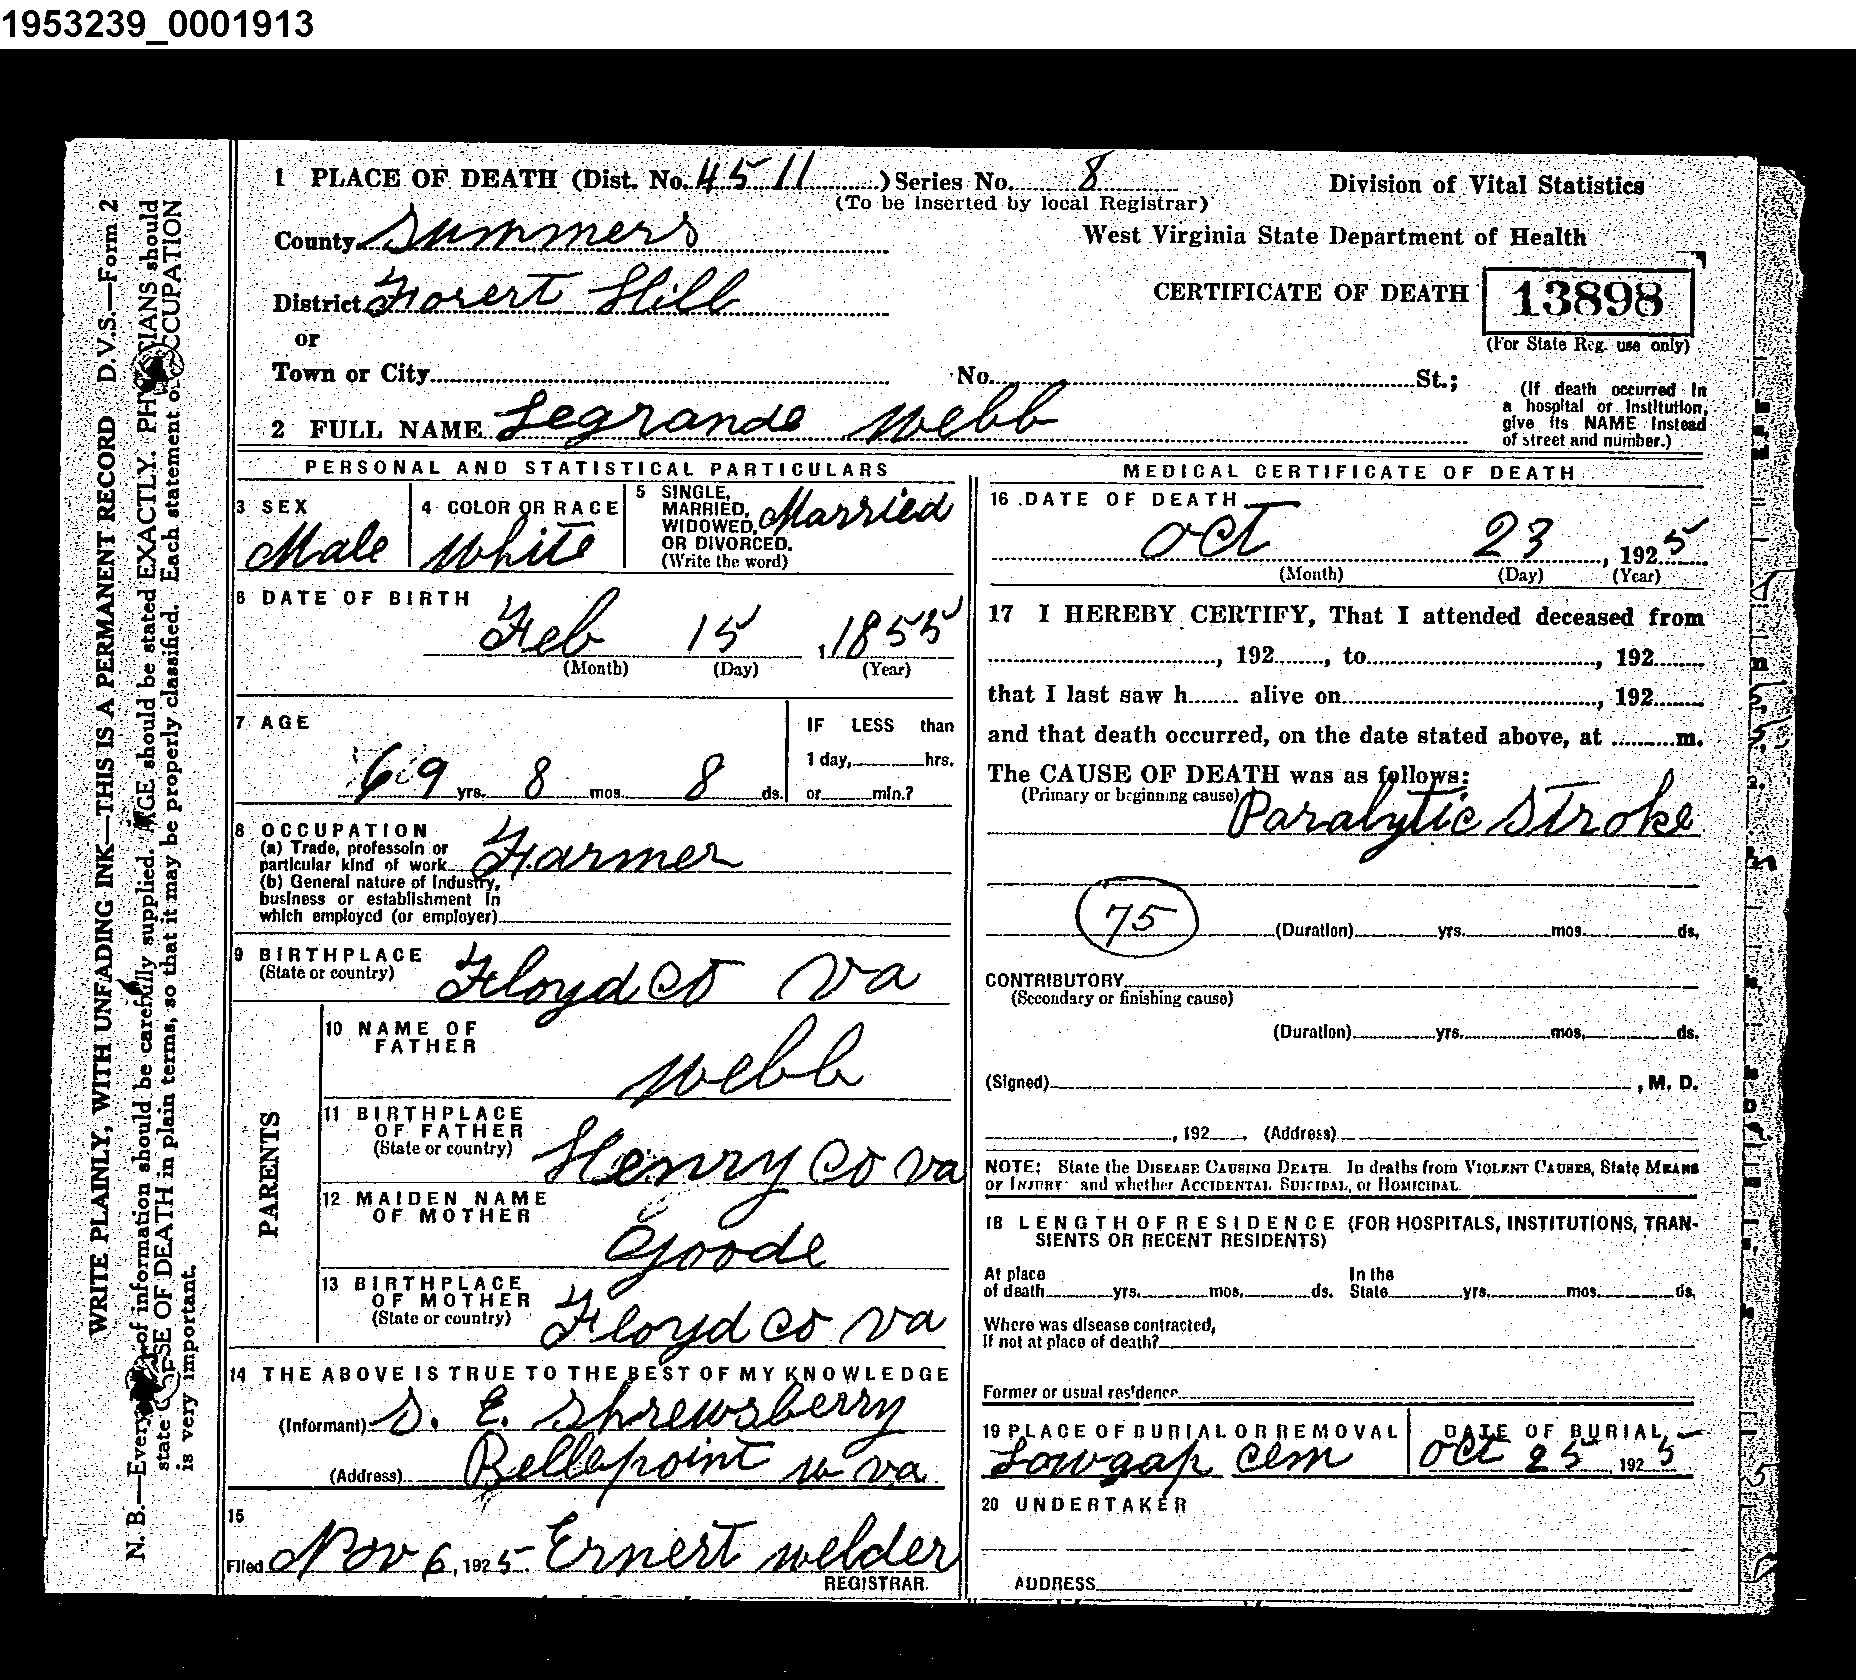 1953239_0001913
1 PLACE OF DEATH (Dist. No. 4511) Series No. 8
(To be inserted by local Registrar)
Division of Vital Statistics
County Summers
West Virginia State Department of Health
District Forert Hill
CERTIFICATE OF DEATH 13898
(For State Reg. use only)
or
Town or City No. St.;
(If death occurred in
a hospital or institution,
give its NAME instead
of street and number.)
2 FULL NAME Legrande Webb
PERSONAL AND STATISTICAL PARTICULARS
3 SEX
Male
4 COLOR OR RACE
White
5 SINGLE,
MARRIED,
WIDOWED,
OR DIVORCED.
(Write the word)
Married
6 DATE OF BIRTH
Feb 15, 1855
(Month) (Day) (Year)
7 AGE
69 yrs. 8 mos. 8 ds.
IF LESS than
1 day, hrs.
or min.?
8 OCCUPATION
(a) Trade, professoin or
particular kind of work Farmer
(b) General nature of Industry,
business or establishment in
which employed (or employer)
9 BIRTHPLACE
(State or country) Floyd Co Va
PARENTS
10 NAME OF
FATHER
Webb
11 BIRTHPLACE
OF FATHER
(State or country) Henry Co Va
12 MAIDEN NAME
OF MOTHER
Goode
13 BIRTHPLACE
OF MOTHER
(State or country) Floyd Co Va
14 THE ABOVE IS TRUE TO THE BEST OF MY KNOWLEDGE
(Informant) S. E. Shrewsberry
(Address) Bellepoint W Va
15
Filed Nov 6, 1925. Ernert Welder
REGISTRAR.
MEDICAL CERTIFICATE OF DEATH
16 DATE OF DEATH
Oct 23, 1925
(Month) (Day) (Year)
17 I HEREBY CERTIFY, That I attended deceased from
, 192 , to , 192
that I last saw h alive on , 192
and that death occurred, on the date stated above, at m.
The CAUSE OF DEATH was as follows:
(Primary or beginning cause) Paralytic Stroke
75
(Duration) yrs. mos. ds.
CONTRIBUTORY
(Secondary or finishing cause)
(Duration) yrs. mos. ds.
(Signed) , M. D.
, 192 , (Address)
NOTE: State the DISEASE CAUSING DEATH. In deaths from VIOLENT CAUSES, State MEANS
OF INJURY and whether ACCIDENTAL SUICIDAL, or HOMICIDAL.
18 LENGTH OF RESIDENCE (FOR HOSPITALS, INSTITUTIONS, TRAN-
SIENTS OR RECENT RESIDENTS)
At place
of death yrs. mos. ds.
In the
State yrs. mos. ds.
Where was disease contracted,
If not at place of death?
Former or usual residence
19 PLACE OF BURIAL OR REMOVAL
Lowgap Cem
DATE OF BURIAL
Oct 25 1925
20 UNDERTAKER
ADDRESS
WRITE PLAINLY, WITH UNFADING INK—THIS IS A PERMANENT RECORD D.V.S.—Form 2
N. B.—Every of information should be carefully supplied. AGE should be stated EXACTLY. PHYSICIANS should
state CAUSE OF DEATH in plain terms, so that it may be properly classified. Each statement of OCCUPATION
is very important.